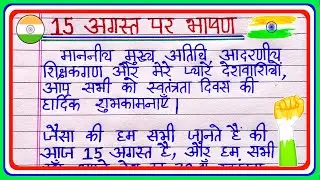 15 अगस्त पर भाषण
माननीय मुख्य अतिथि, आदरणीय
शिक्षकगण और मेरे प्यारे देशवासियों,
आप सभी को स्वतंत्रता दिवस की
हार्दिक शुभकामनाएँ।
जैसा की हम सभी जानते हैं की
आज 15 अगस्त है, और हम सभी